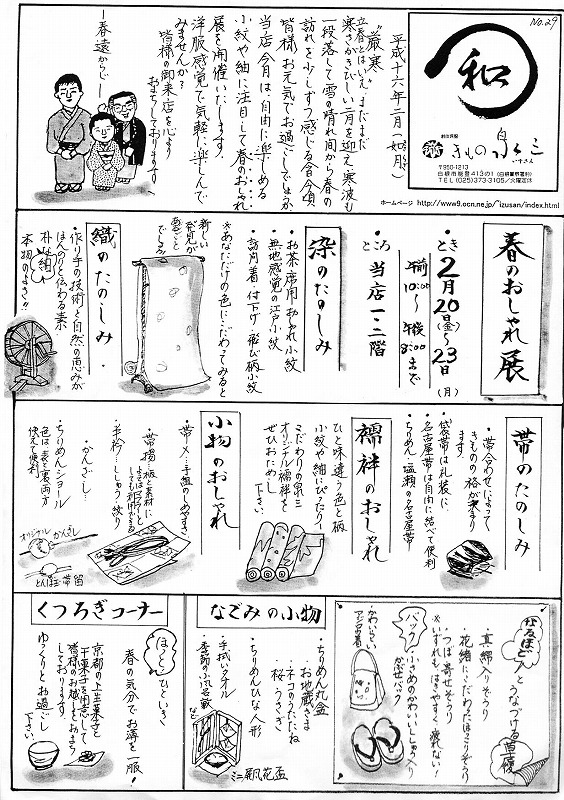 No.29
和
創作呉服
きもの泉三
いずさん
〒950-1213
白根市能登413の1 (白根警察署前)
TEL (025)373-3105/火曜定休
ホームページ http://www9.ocn.ne.jp/~izusan/index.html
平成十六年二月(如月)
厳寒
立春とはいえ、まだまだ
寒さきびしい二月を迎え、寒波も
一段落して雪の晴れ間から春の
訪れを少しずつ感じる今日頃
皆様お元気でお過ごしでしょうか
当店今月は、自由に楽しめる
小紋や紬に注目して春のおしゃれ
展を開催いたします。
洋服感覚で気軽に楽しんで
みませんか?
皆様の御来店を心より
おまちしております。
―春遠からじ―
春のおしゃれ展
とき
2月20日(金)~23日(月)
午前10:00~午後8:00まで
ところ
当店一・二階
染のたのしみ
・お茶席用おしゃれ小紋
・無地感覚の江戸小紋
・訪問着・付下げ・飛び柄小紋
※あなただけの色にこだわってみると
新しい
発見が
あること
でしょう
織のたのしみ
・作り手の技術と自然の恵みが
ほんのりと伝わる素
朴な紬
本物のよさ!!
帯のたのしみ
・帯合わせによって
きものの格が決まり
ます
・袋帯は礼装に
・名古屋帯は自由に結べて便利
・ちりめん・塩瀬の名古屋帯
襦袢のおしゃれ
ひと味違う色と柄
小紋や紬にぴったり!
こだわりの泉三
オリジナル襦袢を
ぜひおためし
下さい。
小物のおしゃれ
帯〆・手組のしめやすさ
・帯揚・板と素材に
・半衿・ししゅう・絞り
・かんざし
・ちりめんショール
色は表と裏両方
使えて便利
オリジナルかんざし
とんぼ玉帯留
なるほど!!
とうなづける草履
・真綿入りぞうり
・花緒にこだわったほっこりぞうり
・つま寄せぞうり
※いずれもはきやすく、疲れない!
バック
・小さめのかわいいししゅう入り
かぶせバック
かわいらしい
アジロの巻
なごみの小物
・ちりめん丸盆
・お地蔵さま
・ネコのうたたね
・桜うさぎ
・ちりめんひな人形
・手拭いタオル
・季節の小風呂敷
など
ミニ瓢花盃
くつろぎコーナー
ほっと
ひといき
春の気分でお薄を一服!
京都の上生菓子と
干菓子を用意して
皆様のお越しをおまち
しております。
ゆっくりとお過ごし
下さい。